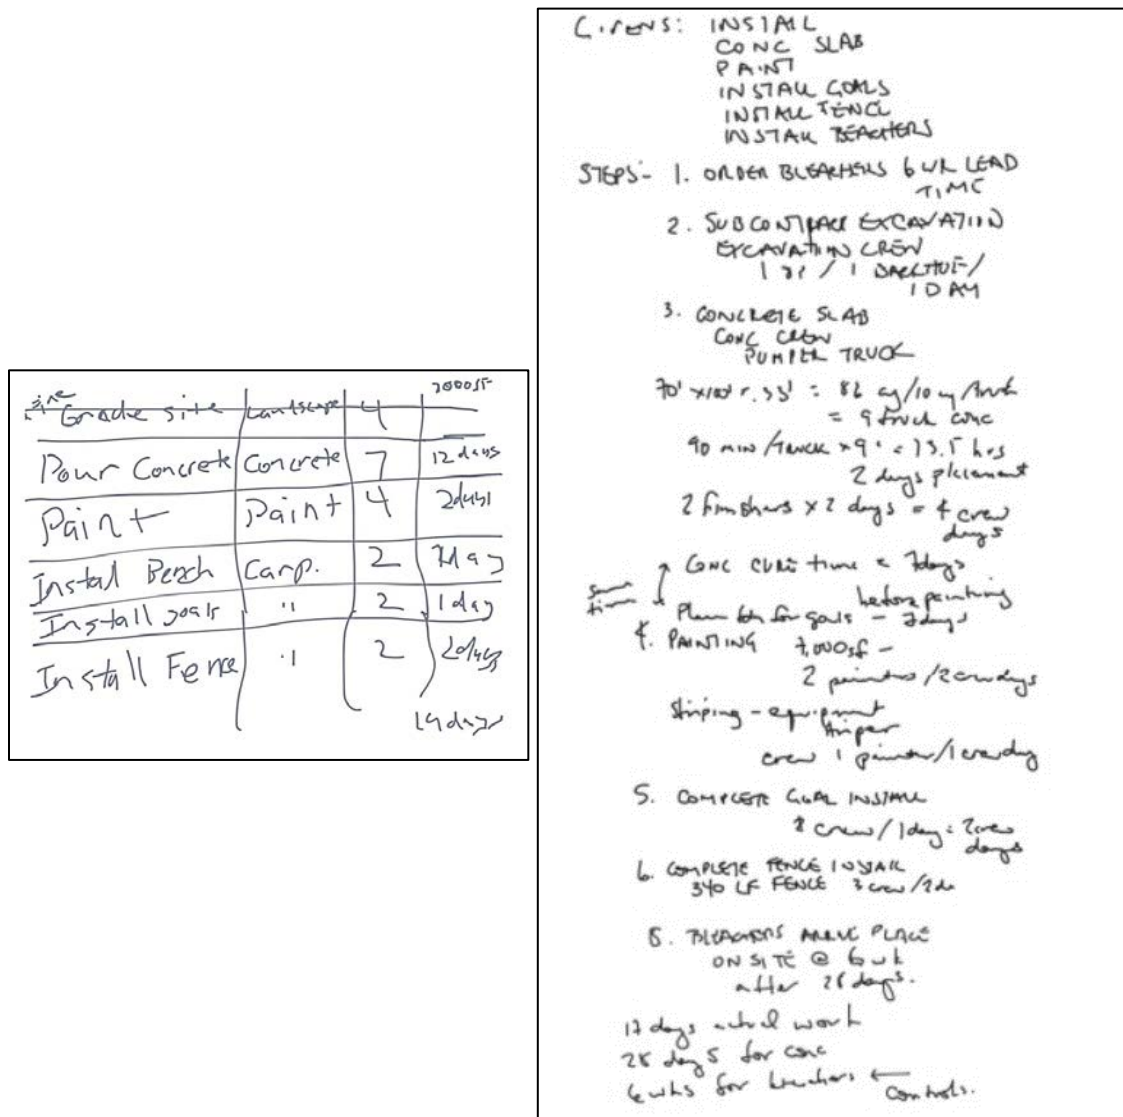 Grade site Landscape 4
Pour Concrete Concrete 7 12 days
Paint Paint 4 2days
Install Bench Carp. 2 day
Install goals " 2 1 day
Install Fence " 2 2days
14 days
GIVENS: INSTALL
CONC SLAB
PAINT
INSTALL GOALS
INSTALL FENCE
INSTALL BEACHERS
STEPS- 1. ORDER BLEACHERS 6 WK LEAD
TIME
2. SUBCONTRACT EXCAVATION
EXCAVATION CREW
1 / 1 BACKHOE/
1 DAY
3. CONCRETE SLAB
CONC CREW
PUMPER TRUCK
70' x100' x .33' = 86 cy/10 cy /truck
= 9 truck conc
90 min/TRUCK x 9 = 13.5 hrs
2 days placement
2 finishers x 2 days = 4 crew
days
CONC CURE time = 7days
before painting
same
time
for goals - 7days
4. PAINTING 7,000sf -
2 painters /2 crewdays
Striping - equipment
striper
crew 1 painter/1 crewday
5. COMPLETE GOAL INSTALL
crew/1day = 2crew
days
6. COMPLETE FENCE INSTALL
340 LF FENCE 3 crew/2da
8. BLEACHERS ARRIVE PLACE
ON SITE @ 6 wk
after 28 days.
17 days actual work
28 days for conc
6 wks for bleachers ←
controls.